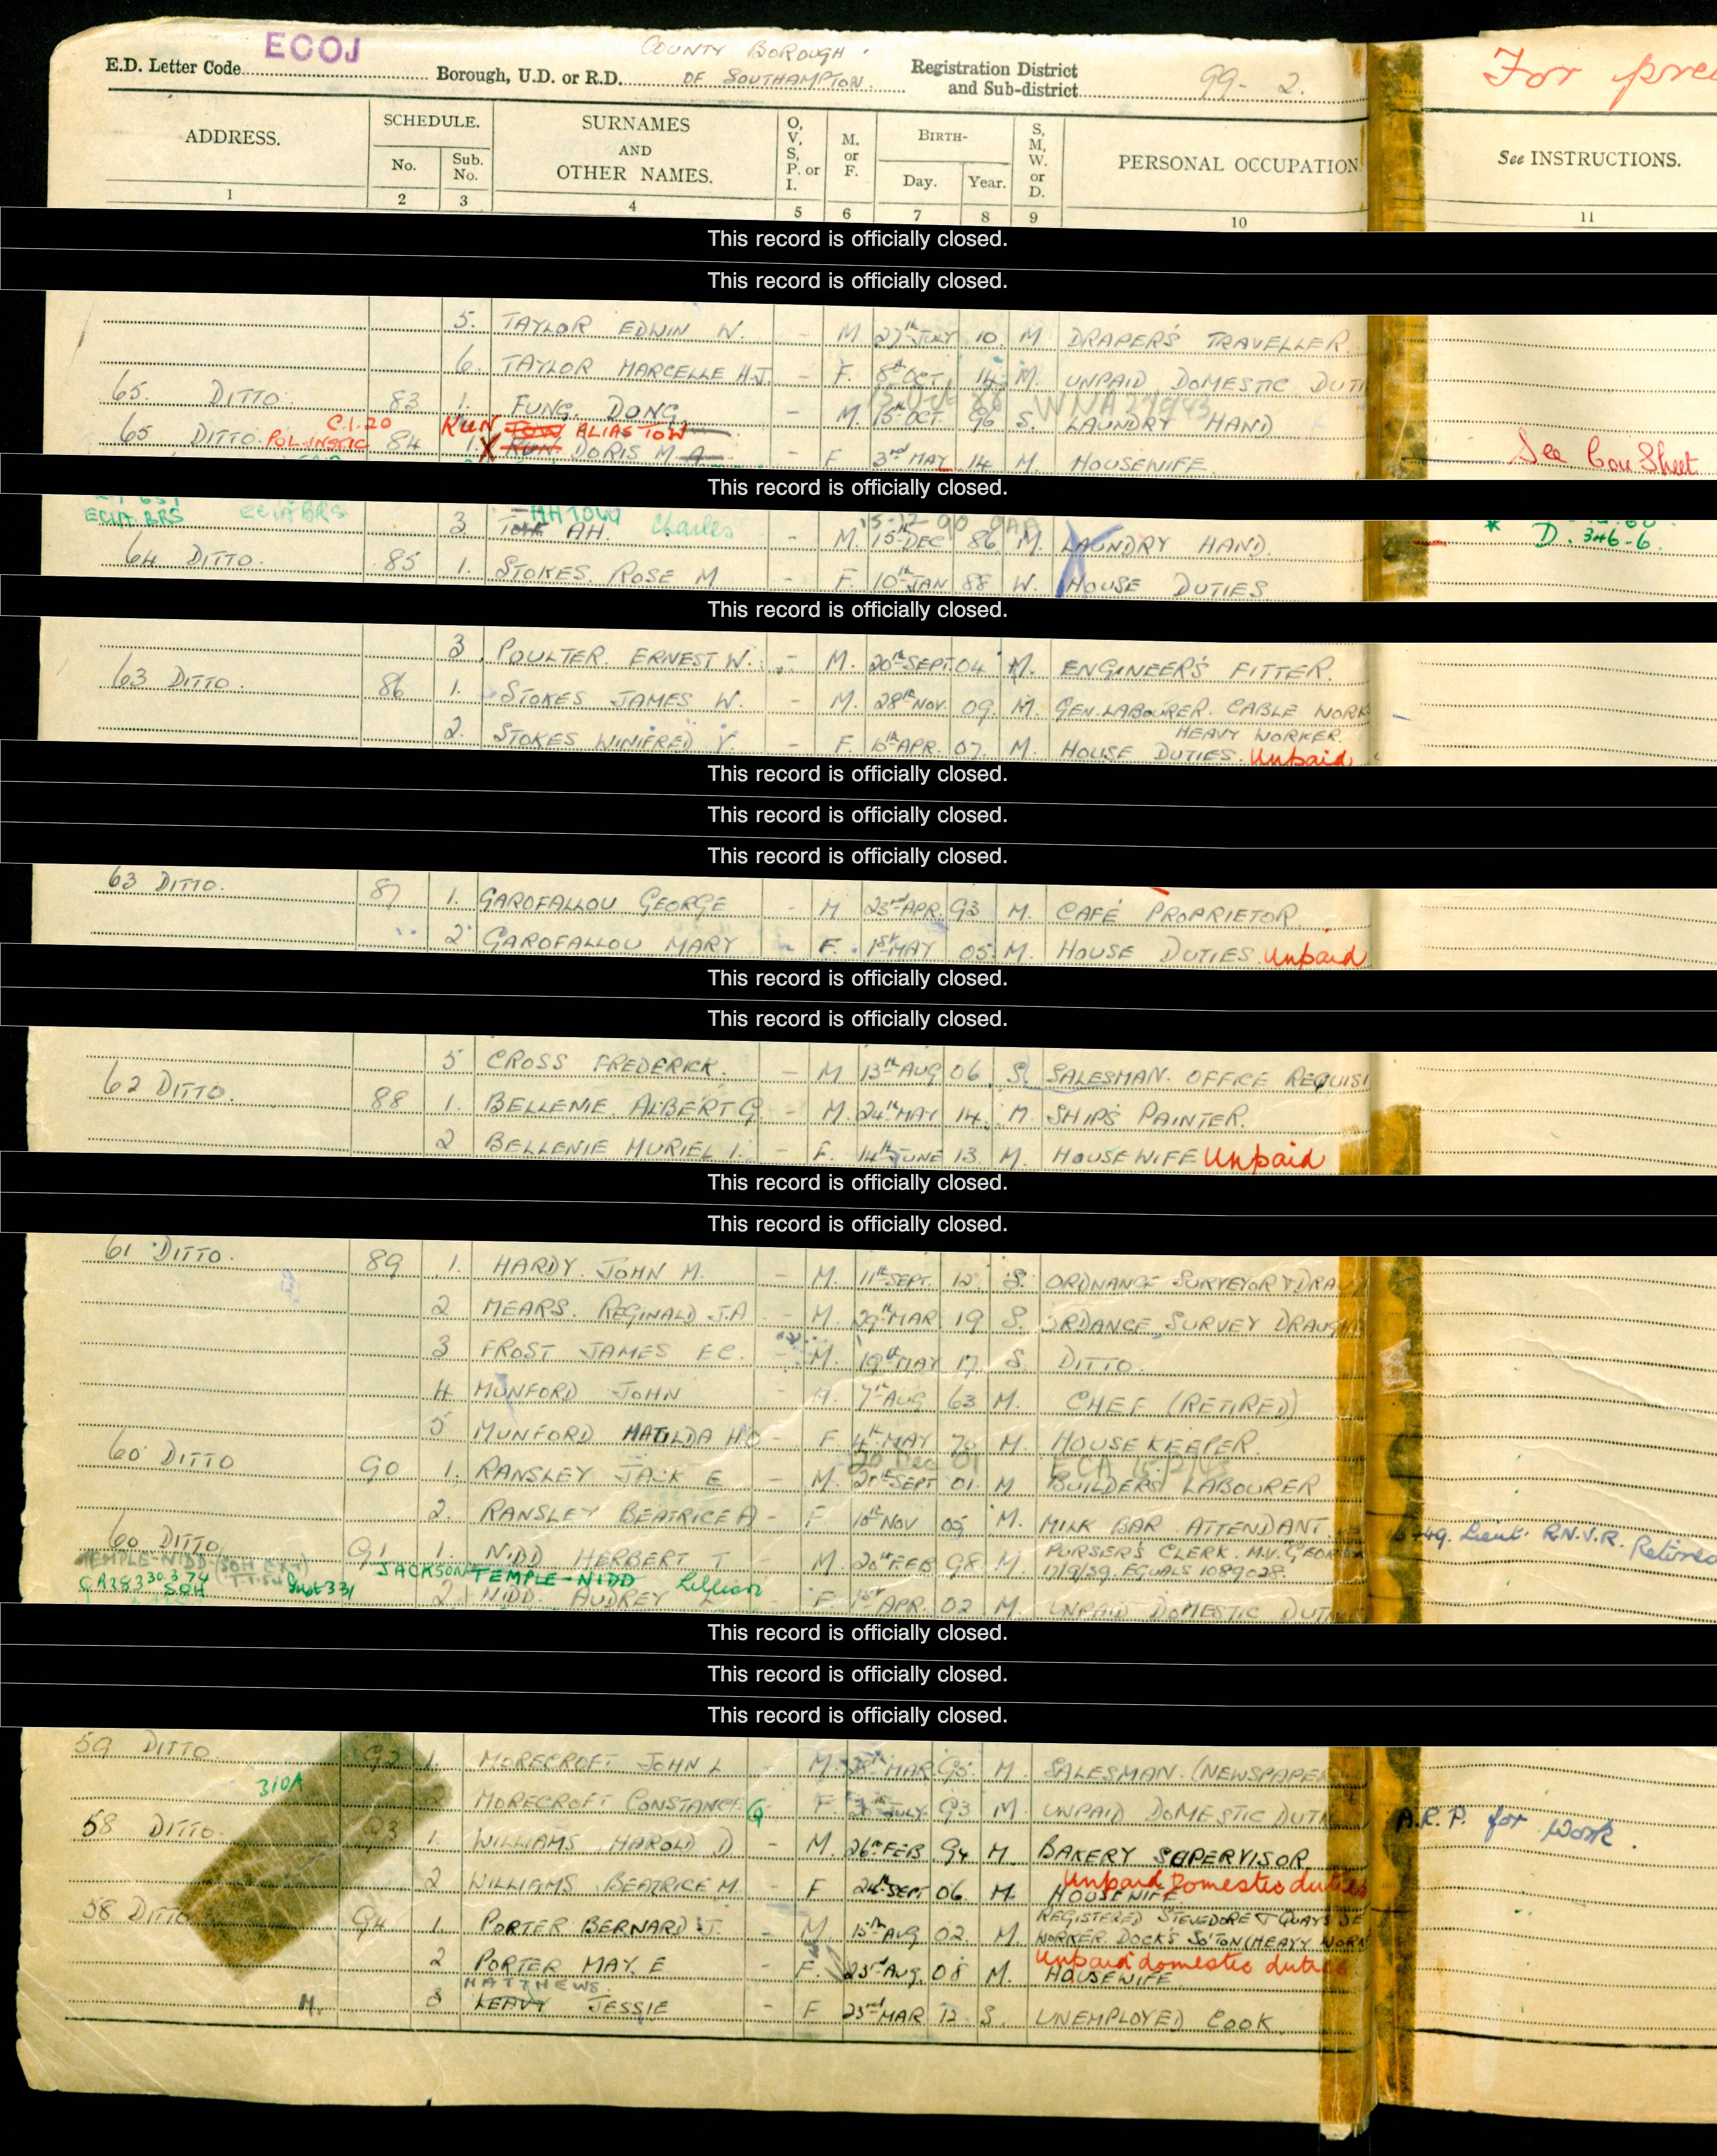 ECOJ
COUNTY BOROUGH
E.D. Letter Code Borough, U.D. or R.D. OF SOUTHAMPTON. Registration District and Sub-district 99- 2.
For
ADDRESS. SCHEDULE. No. Sub. No. SURNAMES AND OTHER NAMES. O, V, S, P. or I. M. or F. BIRTH- Day. Year. S, M, W. or D. PERSONAL OCCUPATION See INSTRUCTIONS.
1 2 3 4 5 6 7 8 9 10 11
This record is officially closed.
This record is officially closed.
5. TAYLOR EDWIN W. - M 27th JULY 10. M DRAPER'S TRAVELLER.
6. TAYLOR MARCELLE H.J. - F. 8th OCT. 14 M. UNPAID DOMESTIC DUTI
65. DITTO 83 1. FUNG. DONG. - M. 15th OCT. 96 S. LAUNDRY HAND
C.1.20 KUN TOW ALIAS TOW
65 DITTO. 84 1. X KUN. DORIS M A - F 3rd MAY 14 M. HOUSEWIFE.
See Con Sheet
This record is officially closed.
AH TOW Charles 15-12-90
3. AH. - M. 15th DEC 86 M. LAUNDRY HAND.
D. 346-6.
64 DITTO. 85 1. STOKES. ROSE M - F. 10th JAN 88 W. HOUSE DUTIES.
This record is officially closed.
3. POULTER. ERNEST W. - M. 20th SEPT. 04 M. ENGINEER'S FITTER.
63 DITTO. 86 1. STOKES JAMES W. - M. 28th NOV. 09. M. GEN. LABOURER. CABLE WORK
HEAVY WORKER.
2. STOKES WINIFRED V. - F. APR. 07. M. HOUSE DUTIES. Unpaid
This record is officially closed.
This record is officially closed.
This record is officially closed.
63 DITTO. 87 1. GAROFALLOU GEORGE - M 23rd APR. 93 M. CAFÉ PROPRIETOR
2 GAROFALLOU MARY - F. 1st MAY 05. M. HOUSE DUTIES. Unpaid
This record is officially closed.
This record is officially closed.
5 CROSS FREDERICK. - M 13th AUG 06 S. SALESMAN. OFFICE REQUISI
62 DITTO. 88 1. BELLENIE. ALBERT G - M. 24th MAY 14. M. SHIPS PAINTER.
2 BELLENIE MURIEL I. - F. 14th JUNE 13. M. HOUSEWIFE Unpaid
This record is officially closed.
This record is officially closed.
61 DITTO. 89 1. HARDY. JOHN M. - M. 11th SEPT. 12. S. ORDNANCE SURVEYOR & DRA
2 MEARS. REGINALD J.A - M. 29th MAR 19 S. ORDANCE SURVEY DRAUGH
3 FROST JAMES F.C. - M. 19th MAY 17 S. DITTO.
4 MUNFORD JOHN M. 7th AUG 63 M. CHEF (RETIRED)
5 MUNFORD MATILDA H O - F 4th MAY 70 M. HOUSE KEEPER.
60 DITTO 90 1. RANSLEY JACK E - M. SEPT 01. M BUILDERS LABOURER
2. RANSLEY BEATRICE A - F. 10th NOV 05 M. MILK BAR ATTENDANT.
60 DITTO 91 1. NIDD HERBERT T. - M. 20th FEB 98 M PURSER'S CLERK. M.V. GEOR
17/9/39. EQUALS 1089028
Lieut. R.N.V.R. Retired
TEMPLE-NIDD JACKSON TEMPLE-NIDD Lillian
CR283 30.3.74 SOH
2 NIDD. AUDREY L - F. 1st APR. 02 M. UNPAID DOMESTIC DUTI
This record is officially closed.
This record is officially closed.
This record is officially closed.
59 DITTO 92 1. MORECROFT JOHN L - M. MAR 95. M. SALESMAN. (NEWSPAPER
310A
MORECROFT CONSTANCE G F. JULY. 93 M UNPAID DOMESTIC DUTI
A.R.P. for work.
58 DITTO. 93 1. WILLIAMS HAROLD D - M. 26th FEB 94 M BAKERY SUPERVISOR
2 WILLIAMS BEATRICE M. - F 24th SEPT 06. M. HOUSEWIFE Unpaid Domestic duties
58 DITTO 94 1. PORTER BERNARD J. - M 15th AUG 02 M. REGISTERED STEVEDORE & QUAYSIDE
WORKER. DOCKS SO'TON (HEAVY WORK
2 PORTER MAY E - F. 23rd AUG. 08 M. HOUSEWIFE Unpaid domestic duties
MATTHEWS
M. 3 LEAVY JESSIE - F 23rd MAR 12. S. UNEMPLOYED COOK.